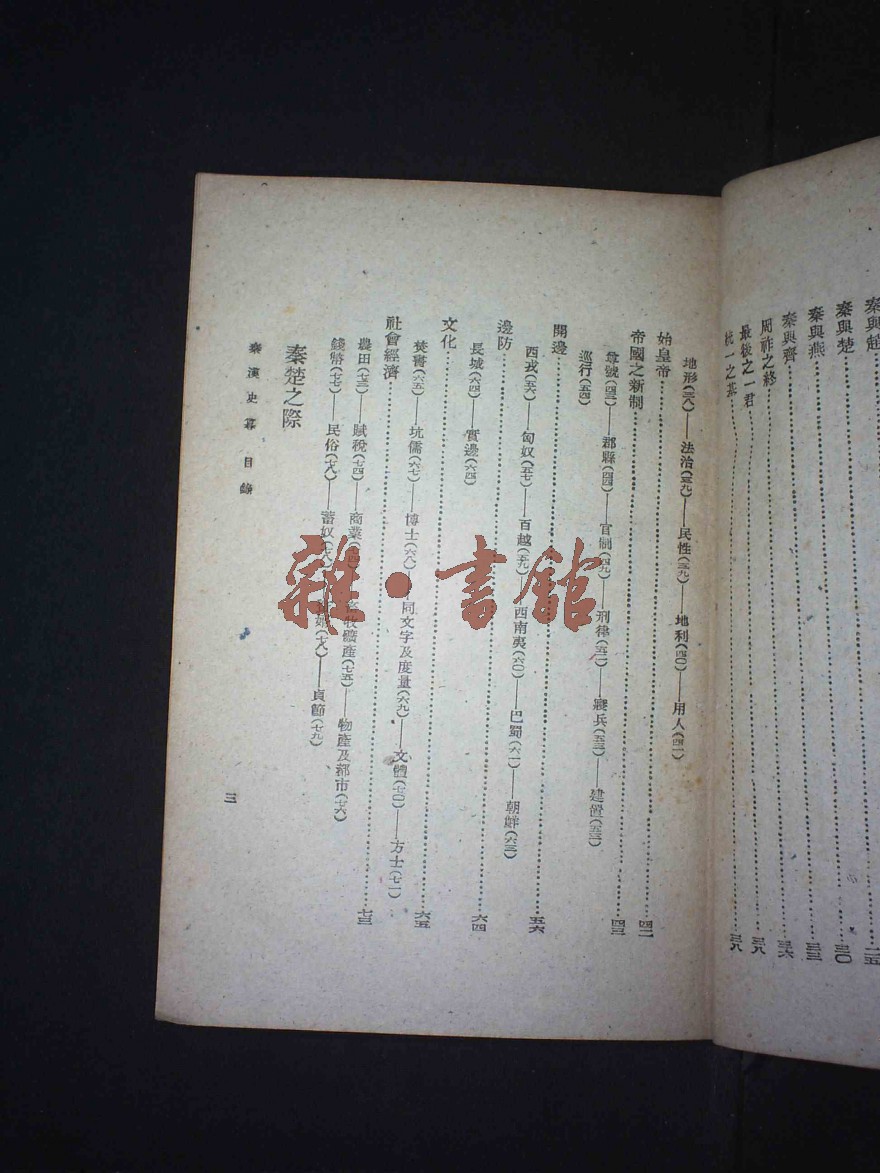 秦與趙……二五
秦與楚……三〇
秦與燕……三三
秦與齊……三六
周祚之終……三八
最後之一君……三八
統一之業……三八
地形(三八)——法治(三九)——民性(三九)——地利(四〇)——用人(四一)
始皇帝……四二
帝國之新制……四三
尊號(四三)——郡縣(四四)——官制(四九)——刑律(五二)——寢兵(五三)——建置(五三)
巡行(五四)
開邊……五六
西戎(五六)——匈奴(五七)——百越(五九)——西南夷(六〇)——巴蜀(六一)——朝鮮(六三)
邊防……六四
長城(六四)——實邊(六四)
文化……六五
焚書(六五)——坑儒(六七)——博士(六八)——同文字及度量(六九)——文體(七〇)——方士(七一)
社會經濟……七三
農田(七三)——賦稅(七四)——商業(七四)——牧礦產(七五)——物產及都市(七六)
錢幣(七七)——民俗(七八)——蓄奴(七八)——(七八)——貞節(七九)
秦楚之際
秦漢史 目錄
三
雜·書館